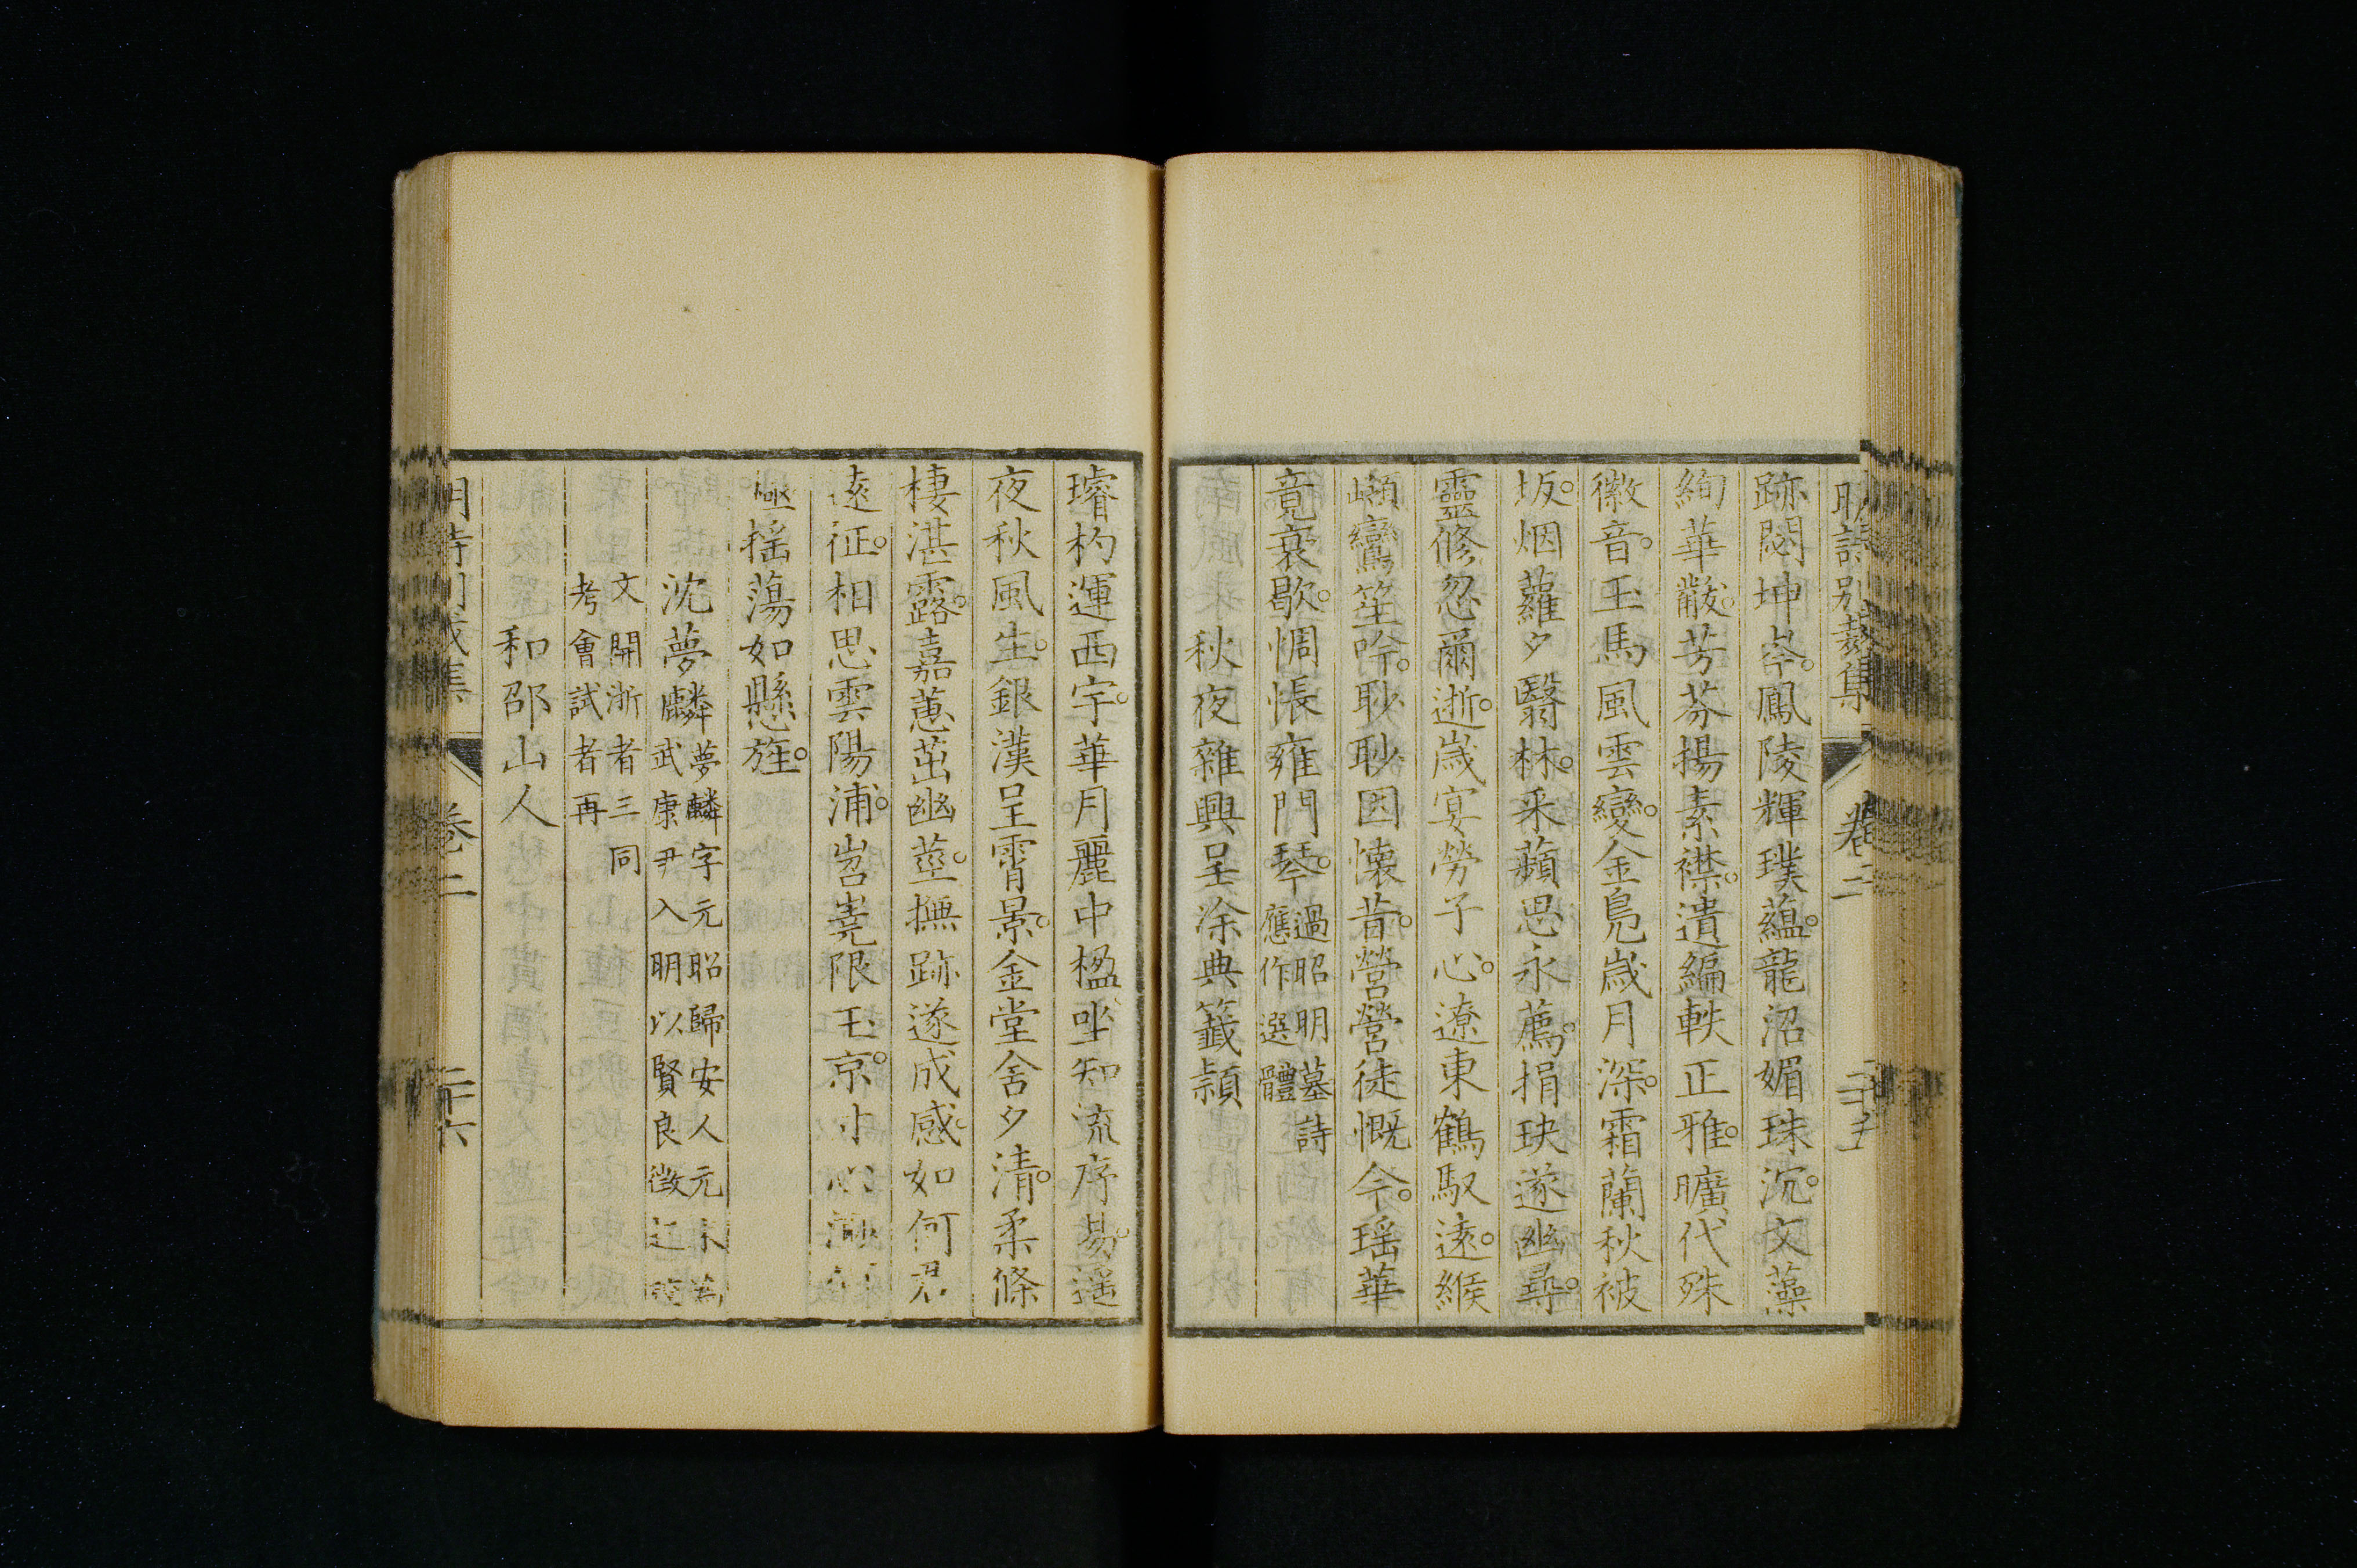 明詩別裁集 卷二 二十五
跡閟坤岑鳳陵輝璞蘊龍沼媚珠沉文藻
絢華黻芳芬揚素襟遺編軼正雅曠代殊
徽音玉馬風雲變金鳧歲月深霜蘭秋被
坂烟蘿夕翳林采蘋思永薦捐玦遂幽尋
靈修忽爾逝歲宴勞子心遼東鶴馭遠緱
嶺鸞笙吟眇眇因懷昔營營徒慨今瑶華
竟衰歇惆悵雍門琴過昭明墓詩應作選體
秋夜雜興呈涂典籤頴
璿杓運西宇華月麗中楹坐知流序易遥
夜秋風生銀漢呈霄景金堂含夕清柔條
棲湛露嘉蕙茁幽莖撫跡遂成感如何君
遠征相思雲陽浦岧嶤限玉京寸心
極摇蕩如懸旌
沈夢麟夢麟字元昭歸安人元末為武康尹入明以賢良徵辭
文開浙者三同考會試者再
和邵山人
明詩別裁集 卷二 二十六